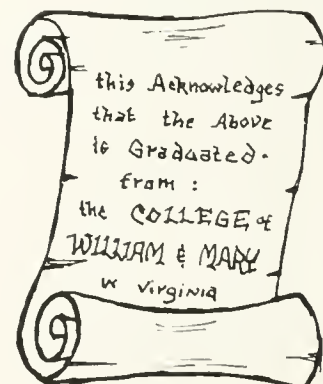 this Acknowledges
that the Above
is Graduated.
from :
the COLLEGE of
WILLIAM & MARY
in Virginia